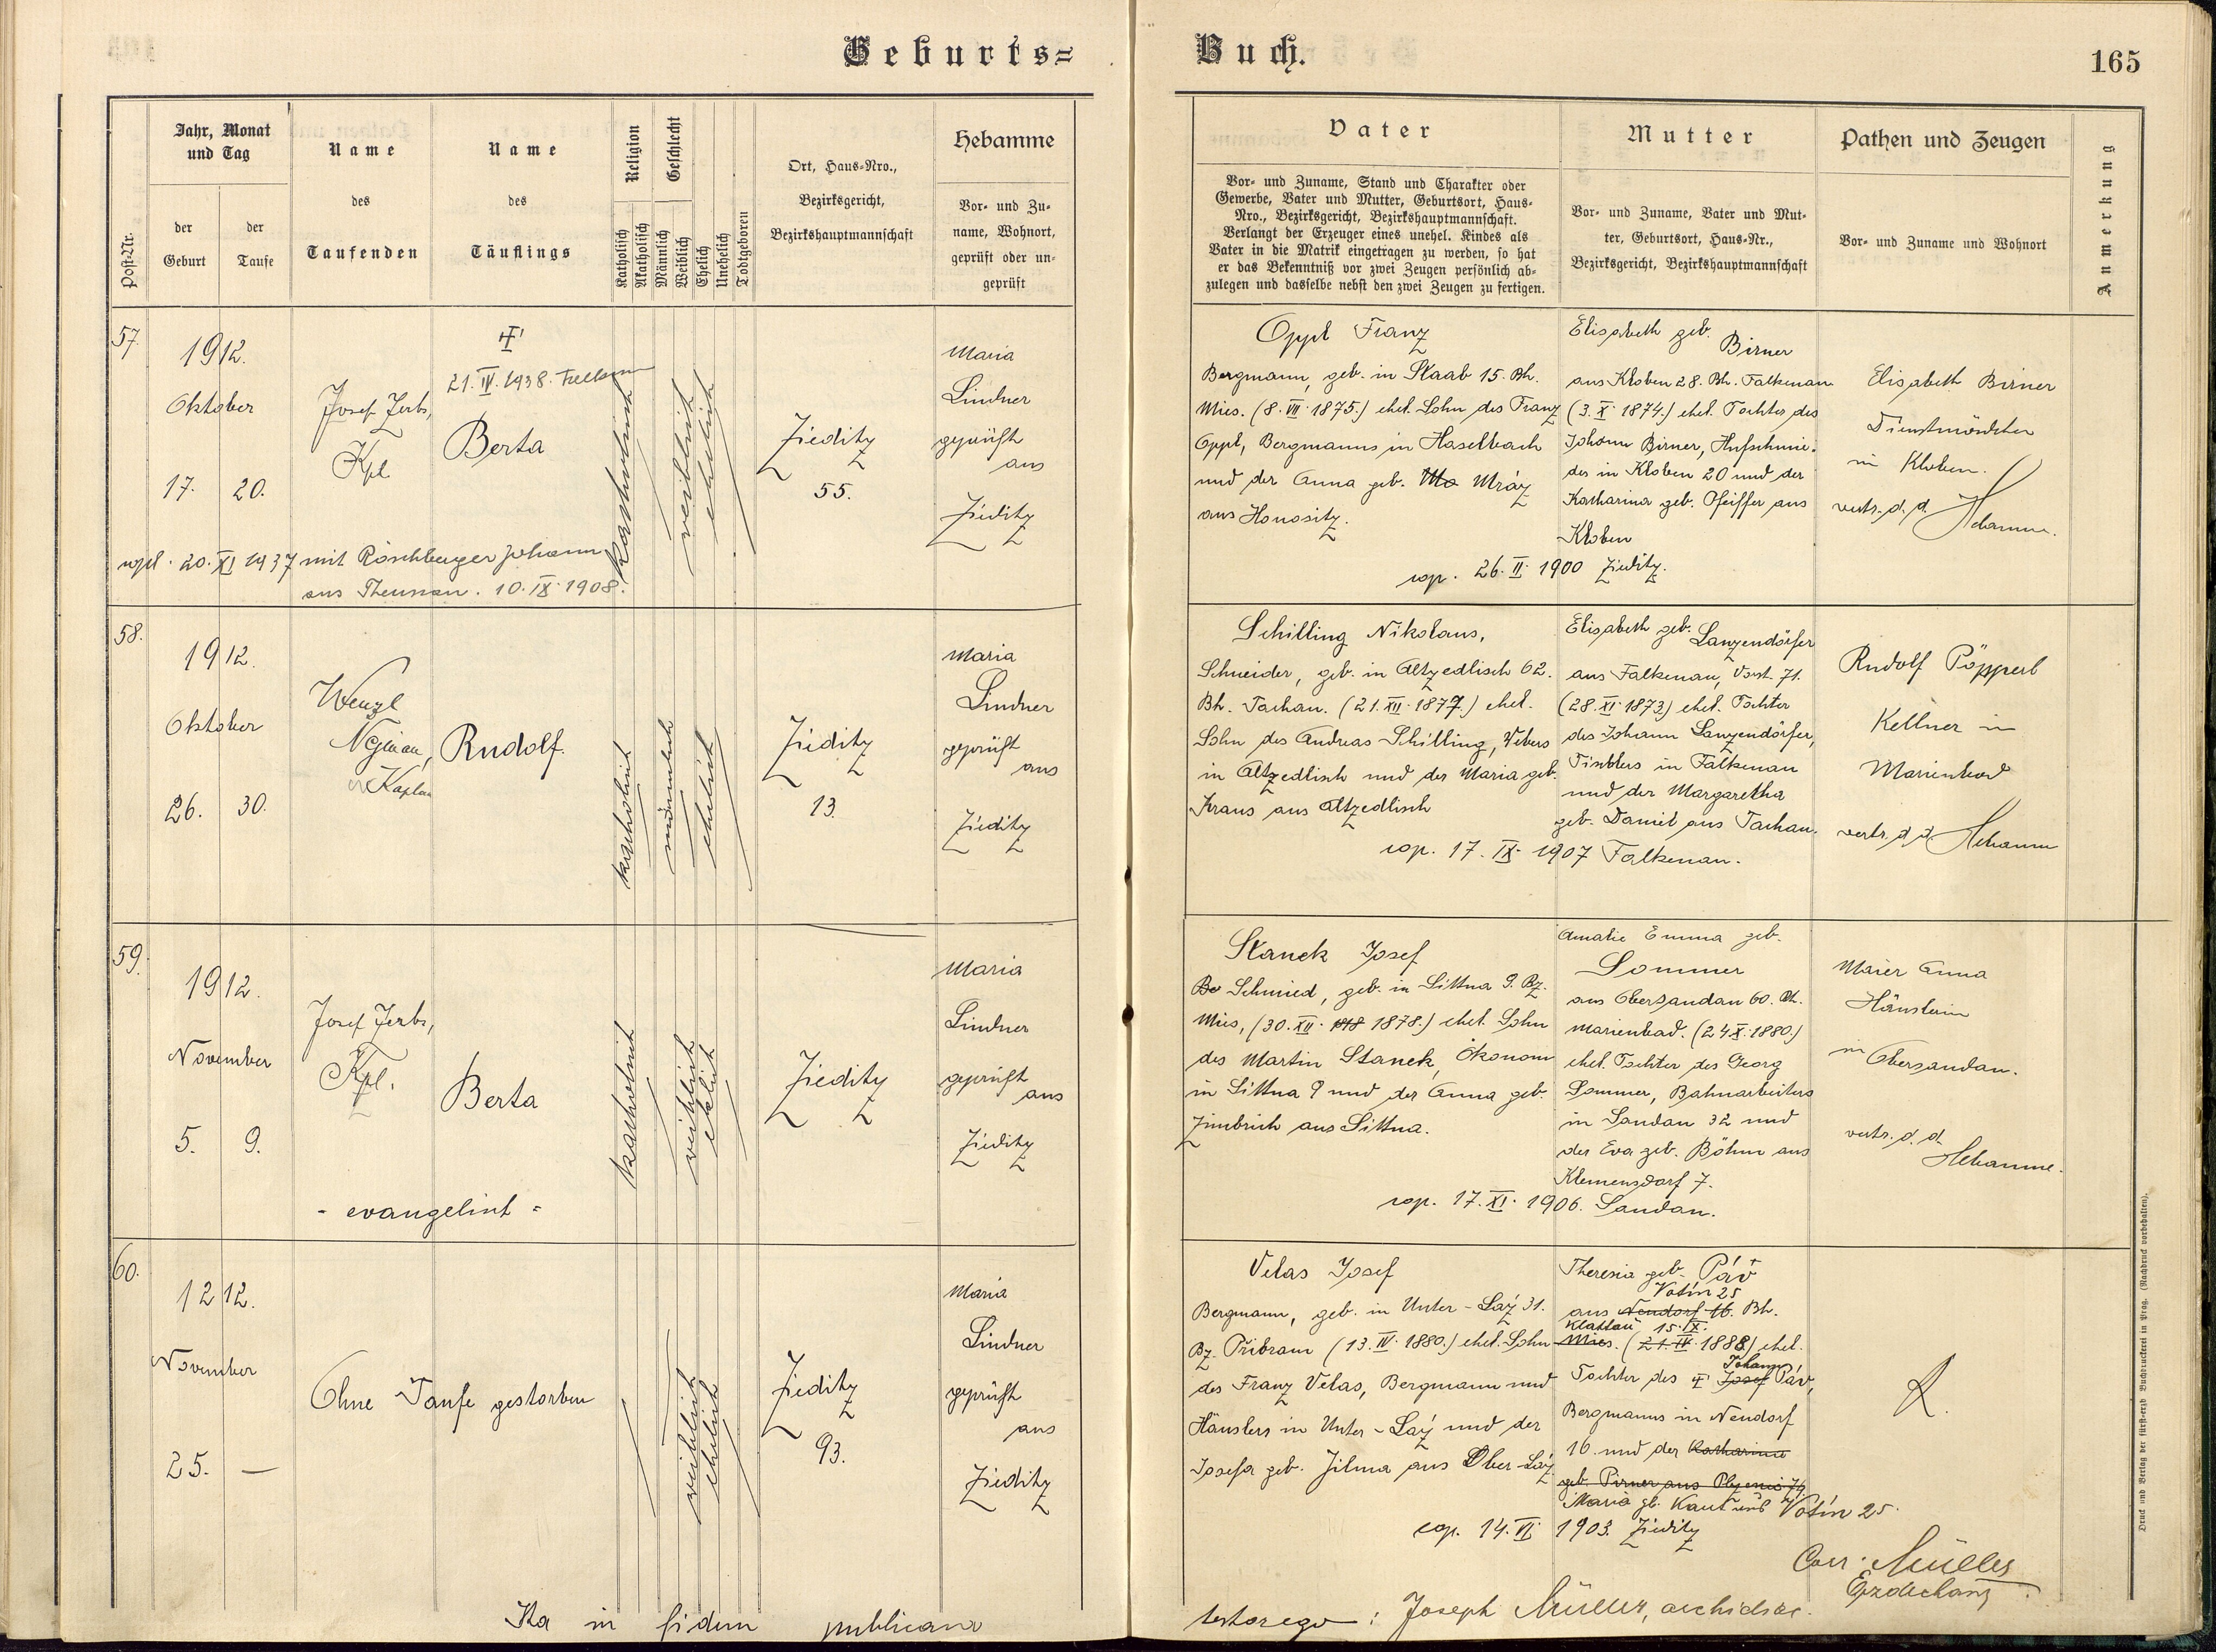 Geburts=
Buch.
165
Post-Nr.
Jahr, Monat
und Tag
der
Geburt
der
Taufe
Name
des
Taufenden
Name
des
Täuflings
Religion
Katholisch
Akatholisch
Geschlecht
Männlich
Weiblich
Ehelich
Unehelich
Todtgeboren
Ort, Haus-Nro.,
Bezirksgericht,
Bezirkshauptmannschaft
Hebamme
Vor- und Zu-
name, Wohnort,
geprüft oder un-
geprüft
Vater
Vor- und Zuname, Stand und Charakter oder
Gewerbe, Vater und Mutter, Geburtsort, Haus-
Nro., Bezirksgericht, Bezirkshauptmannschaft.
Verlangt der Erzeuger eines unehel. Kindes als
Vater in die Matrik eingetragen zu werden, so hat
er das Bekenntniß vor zwei Zeugen persönlich ab-
zulegen und dasselbe nebst den zwei Zeugen zu fertigen.
Mutter
Vor- und Zuname, Vater und Mut-
ter, Geburtsort, Haus-Nr.,
Bezirksgericht, Bezirkshauptmannschaft
Pathen und Zeugen
Vor- und Zuname und Wohnort
Anmerkung
57.
1912.
Oktober
17. 20.
Josef Zerbs,
Kpl
21. IV. 1938.
Berta
katholisch
weiblich
ehelich
Zieditz
55.
Maria
Lindner
geprüft
aus
Zieditz
copul. 20. XI 1937 mit Röschberger Johann
aus Theussau. 10. IX. 1908.
Oppl Franz
Bergmann, geb. in Staab 15. Bh.
Mies. (8. VII. 1875.) ehel. Sohn des Franz
Oppl, Bergmanns in Haselbach
und der Anna geb. Mráz
aus Honositz.
Elisabeth geb.
Birner
aus Kloben 28. Bh. Falkenau
(3. X. 1874.) ehel. Tochter des
Johann Birner, Hufschmie-
des in Kloben 20 und der
Katharina geb. Pfeiffer aus
Kloben
cop. 26. II. 1900 Zieditz.
Elisabeth Birner
Dienstmädchen
in Kloben.
vertr. d. d. Hebamme.
58.
1912.
Oktober
26. 30.
Wenzl
Kaplan
Rudolf.
katholisch
männlich
ehelich
Zieditz
13.
Maria
Lindner
geprüft
aus
Zieditz
Schilling Nikolaus,
Schneider, geb. in Altzedlisch 62.
Bh. Tachau. (21. XII. 1877.) ehel.
Sohn des Andreas Schilling, Webers
in Altzedlisch und der Maria geb.
Kraus aus Altzedlisch
Elisabeth geb. Lanzendörfer
aus Falkenau, Vorst. 71.
(28. XI. 1873.) ehel. Tochter
des Johann Lanzendörfer,
Tischlers in Falkenau
und der Margaretha
geb. Daniel aus Tachau.
cop. 17. IX. 1907 Falkenau.
Rudolf Pöpperl
Kellner in
Marienbad
vertr. d. d. Hebamme
59.
1912.
November
5. 9.
Josef Zerbs,
Kpl.
Berta
katholisch
weiblich
ehelich
Zieditz
Maria
Lindner
geprüft
aus
Zieditz
- evangelisch -
Stanek Josef
Schmied, geb. in Sittna 9. Bz.
Mies, (30. XII. 1878.) ehel. Sohn
des Martin Stanek, Ökonom
in Sittna 9 und der Anna geb.
Zimbrich aus Sittna.
Amalie Emma geb.
Sommer
aus Obersandau 60. Bh.
Marienbad. (24. X. 1880.)
ehel. Tochter des Georg
Sommer, Bahnarbeiters
in Sandau 32 und
der Eva geb. Böhm aus
Klemensdorf 7.
cop. 17. XI. 1906. Sandau.
Maier Anna
Häuslerin
in Obersandau.
vertr. d. d.
Hebamme.
60.
1212.
November
25. —
Ohne Taufe gestorben
weiblich
ehelich
Zieditz
93.
Maria
Lindner
geprüft
aus
Zieditz
Velas Josef
Bergmann, geb. in Unter-Laz 31.
Bz. Přibram (13. IV. 1880.) ehel. Sohn
des Franz Velas, Bergmann und
Häuslers in Unter-Laz und der
Josefa geb. Jilma aus Ober-Laz
Theresia geb. Páv
Votín 25
aus Neudorf 16. Bh.
Klattau 15. IX.
Mies. (21. IV. 1888) ehel.
Johann
Tochter des † Josef Páv,
Bergmanns in Neudorf
16 und der Katharina
geb. Pirner aus
Maria gb. Votín 25.
cop. 14. VI. 1903. Zieditz
Corr: Müller
Erzdechant
Ita in fidem publicam
testor ego: Joseph Müller, archidiac.
Druck und Verlag der fürst-erzb. Buchdruckerei in Prag. (Nachdruck vorbehalten).